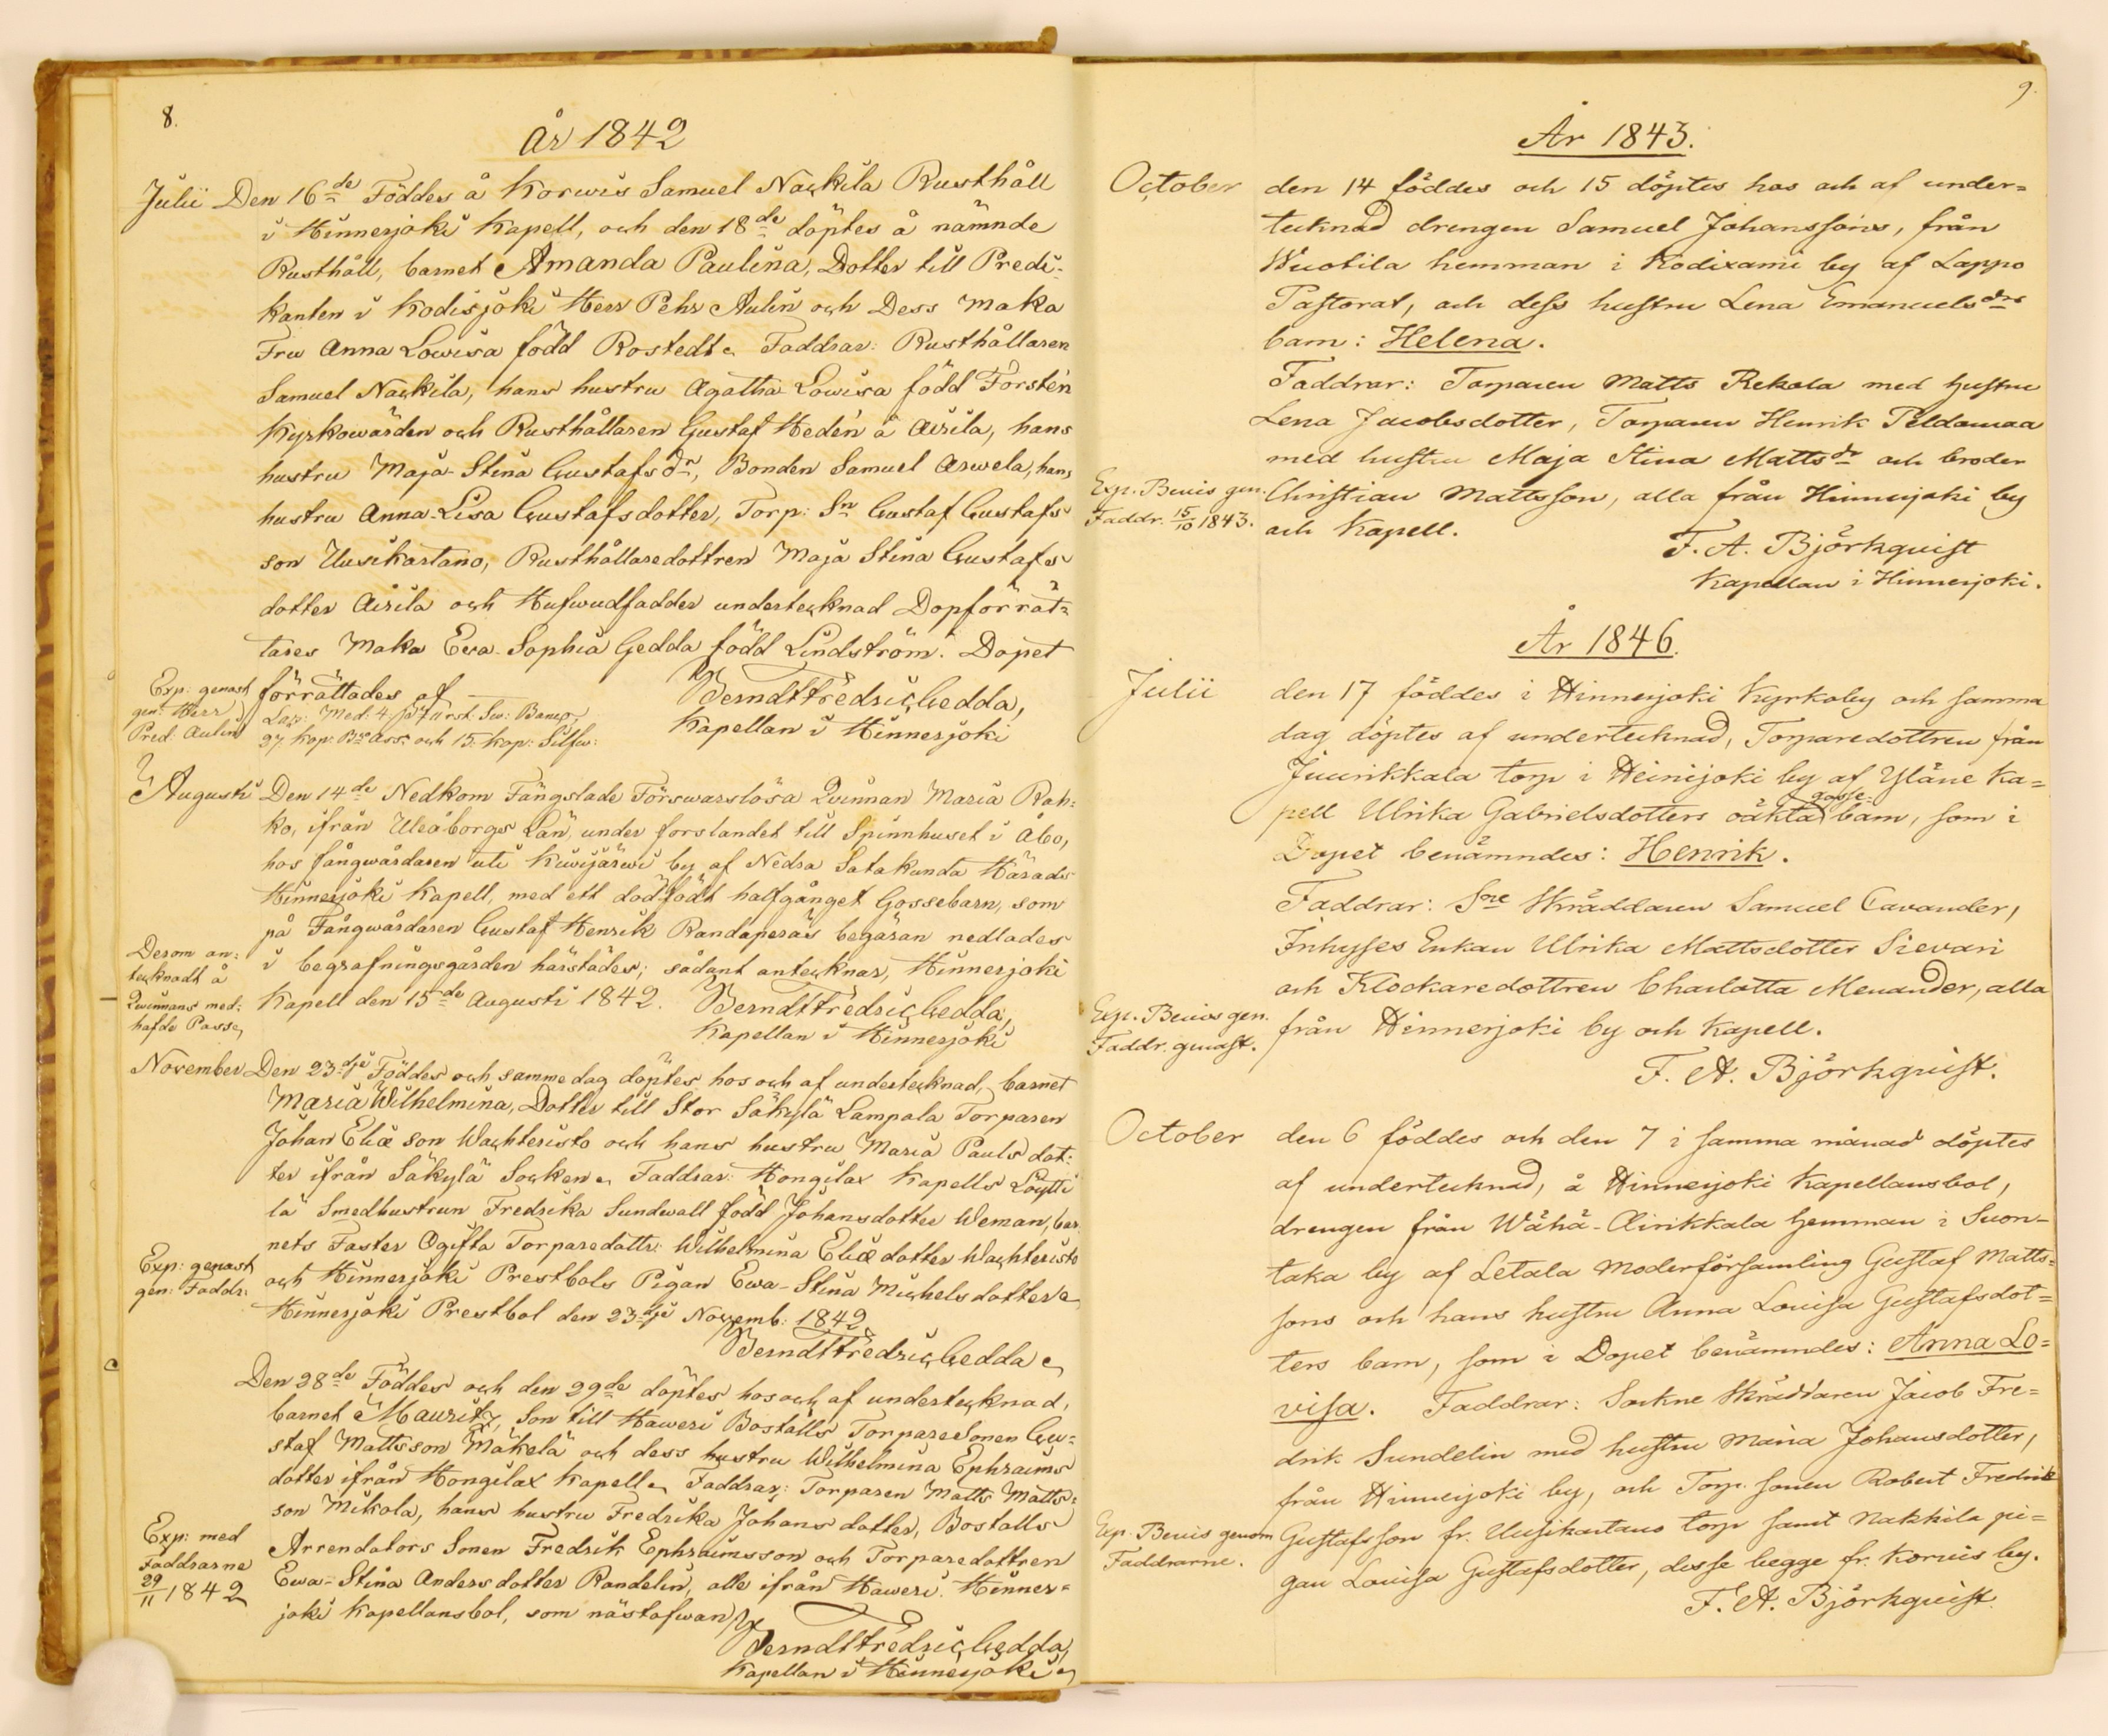 8.
År 1842
Julii Den 16de Föddes å Korwis Samuel Nackila Rusthåll
i Hinnerjoki Kapell, och den 18de döptes å nämnde
Rusthåll, barnet Amanda Paulina, Dotter till Predi-
kanten i Kodisjoki Herr Pehr Aulin och Dess Maka
Fru Anna Lowisa född Rostedt. Faddrar: Rusthållaren
Samuel Nackila, hans hustru Agatha Lowisa född Forstén
Kyrkowärden och Rusthållaren Gustaf Hedén å Airila, hans
hustru Maja-Stina Gustafs dr, Bonden Samuel Arwela, hans
hustru Anna-Lisa Gustafsdotter, Torp: Sn Gustaf Gustafs
son Uusikartano, Rusthållaredottren Maja Stina Gustafs
dotter Airila och Hufwudfadder undertecknad Dopförrät-
tares Maka Ewa-Sophia Gedda född Lindström. Dopet
förrättades af
Berndt Fredric Gedda,
Kapellan i Hinnerjoki
Exp: genast
gen: Herr
Pred: Aulin
27 Kop: Br Ass: och 15 Kop: Silfw:
Augusti Den 14de Nedkom Fängslade Förswarslösa Qvinnan Maria Rah-
ko, ifrån Uleåborgs Län, under forslandet till Spinnhuset i Åbo,
hos fångwårdaren uti Kiwijärwi by af Nedra Satakunda Härads
Hinnerjoki Kapell, med ett dödfödt halfgånget Gossebarn, som
på Fångwårdaren Gustaf Henrik Randaperäs begäran nedlades
i begrafningsgården härstädes; sådant antecknar, Hinnerjoki
Kapell den 15de Augusti 1842.
Berndt Fredric Gedda,
Kapellan i Hinnerjoki
Derom an-
tecknadt å
Qwinnans med-
hafde Pass
November Den 23dje Föddes och samme dag döptes hos och af undertecknad, barnet
Maria Wilhelmina, Dotter till Stor Säkylä Lampala Torparen
Johan Eliæ son Wachteristo och hans hustru Maria Pauls dot-
ter ifrån Säkylä Socken. Faddrar: Hongilax Kapells Löytti
lä Smedhustrun Fredrika Sundwall född Johansdotter Weman, bar
nets Faster Ogifta Torparedottr: Wilhelmina Eliæ dotter Wachteristo
och Hinnerjoki Prestbols Pigan Ewa-Stina Michels dotter.
Hinnerjoki Prestbol den 23dje Novemb: 1842
Berndt Fredric Gedda
Exp: genast
gen: Faddr:
Den 28de Föddes och den 29de döptes hos och af undertecknad,
barnet Mauritz, Son till Haweri Boställs Torparesonen Gu-
staf Mattsson Mäkelä och dess hustru Wilhelmina Ephraims
dotter ifrån Hongilax Kapell. Faddrar: Torparen Matts Matts-
son Mikola, hans hustru Fredrika Johans dotter, Boställs
Arrendators Sonen Fredrik Ephraimsson och Torparedottren
Ewa-Stina Anders dotter Randelin, alle ifrån Haweri. Hinner-
joki Kapellansbol, som nästofwan
Berndt Fredric Gedda,
Kapellan i Hinnerjoki
Exp: med
Faddrarne
29/11 1842
9.
År 1843.
October den 14 föddes och 15 döptes hos och af under-
tecknad drengen Samuel Johanssons, från
Wuotila hemman i Kodixami by af Lappo
Pastorat, och dess hustru Lena Emanuels drs
barn: Helena.
Faddrar: Torparen Matts Rekola med hustru
Lena Jacobsdotter, Torparen Henrik Peldomaa
med hustru Maja Stina Matts dr och broder
Christian Mattsson, alla från Hinnerjoki by
och Kapell.
Exp. Bevis gen.
Faddr. 15/10 1843.
F. A. Björkquist
Kapellan i Hinnerjoki.
År 1846.
Julii den 17 föddes i Hinnerjoki Kyrkoby och samma
dag döptes af undertecknad, Torparedottren från
Juurikkala torp i Heinijoki by af Yläne Ka-
pell Ulrika Gabrielsdotters oäkta gosse-barn, som i
Dopet benämndes: Henrik.
Faddrar: Sne Skräddaren Samuel Cavander,
Inhyses Enkan Ulrika Mattsdotter Sievari
och Klockaredottren Charlotta Menander, alla
från Hinnerjoki by och Kapell.
Exp. Bevis gen.
Faddr. genast.
F. A. Björkquist.
October den 6 föddes och den 7 i samma månad döptes
af undertecknad, å Hinnerjoki Kapellansbol,
drengen från Wähä-Airikkala hemman i Suon-
taka by af Letala Moderförsamling Gustaf Matts-
sons och hans hustru Anna Lovisa Gustafsdot-
ters barn, som i Dopet benämndes: Anna Lo-
visa. Faddrar: Sockne Skräddaren Jacob Fre-
drik Sundelin med hustru Maria Johansdotter,
från Hinnerjoki by, och Torp. sonen Robert Fredrik
Gustafsson fr. Uusikartano torp samt Nakkila pi-
gan Lovisa Gustafsdotter, desse begge fr. Korvis by.
Exp. Bevis genom
Faddrarne.
F. A. Björkquist.